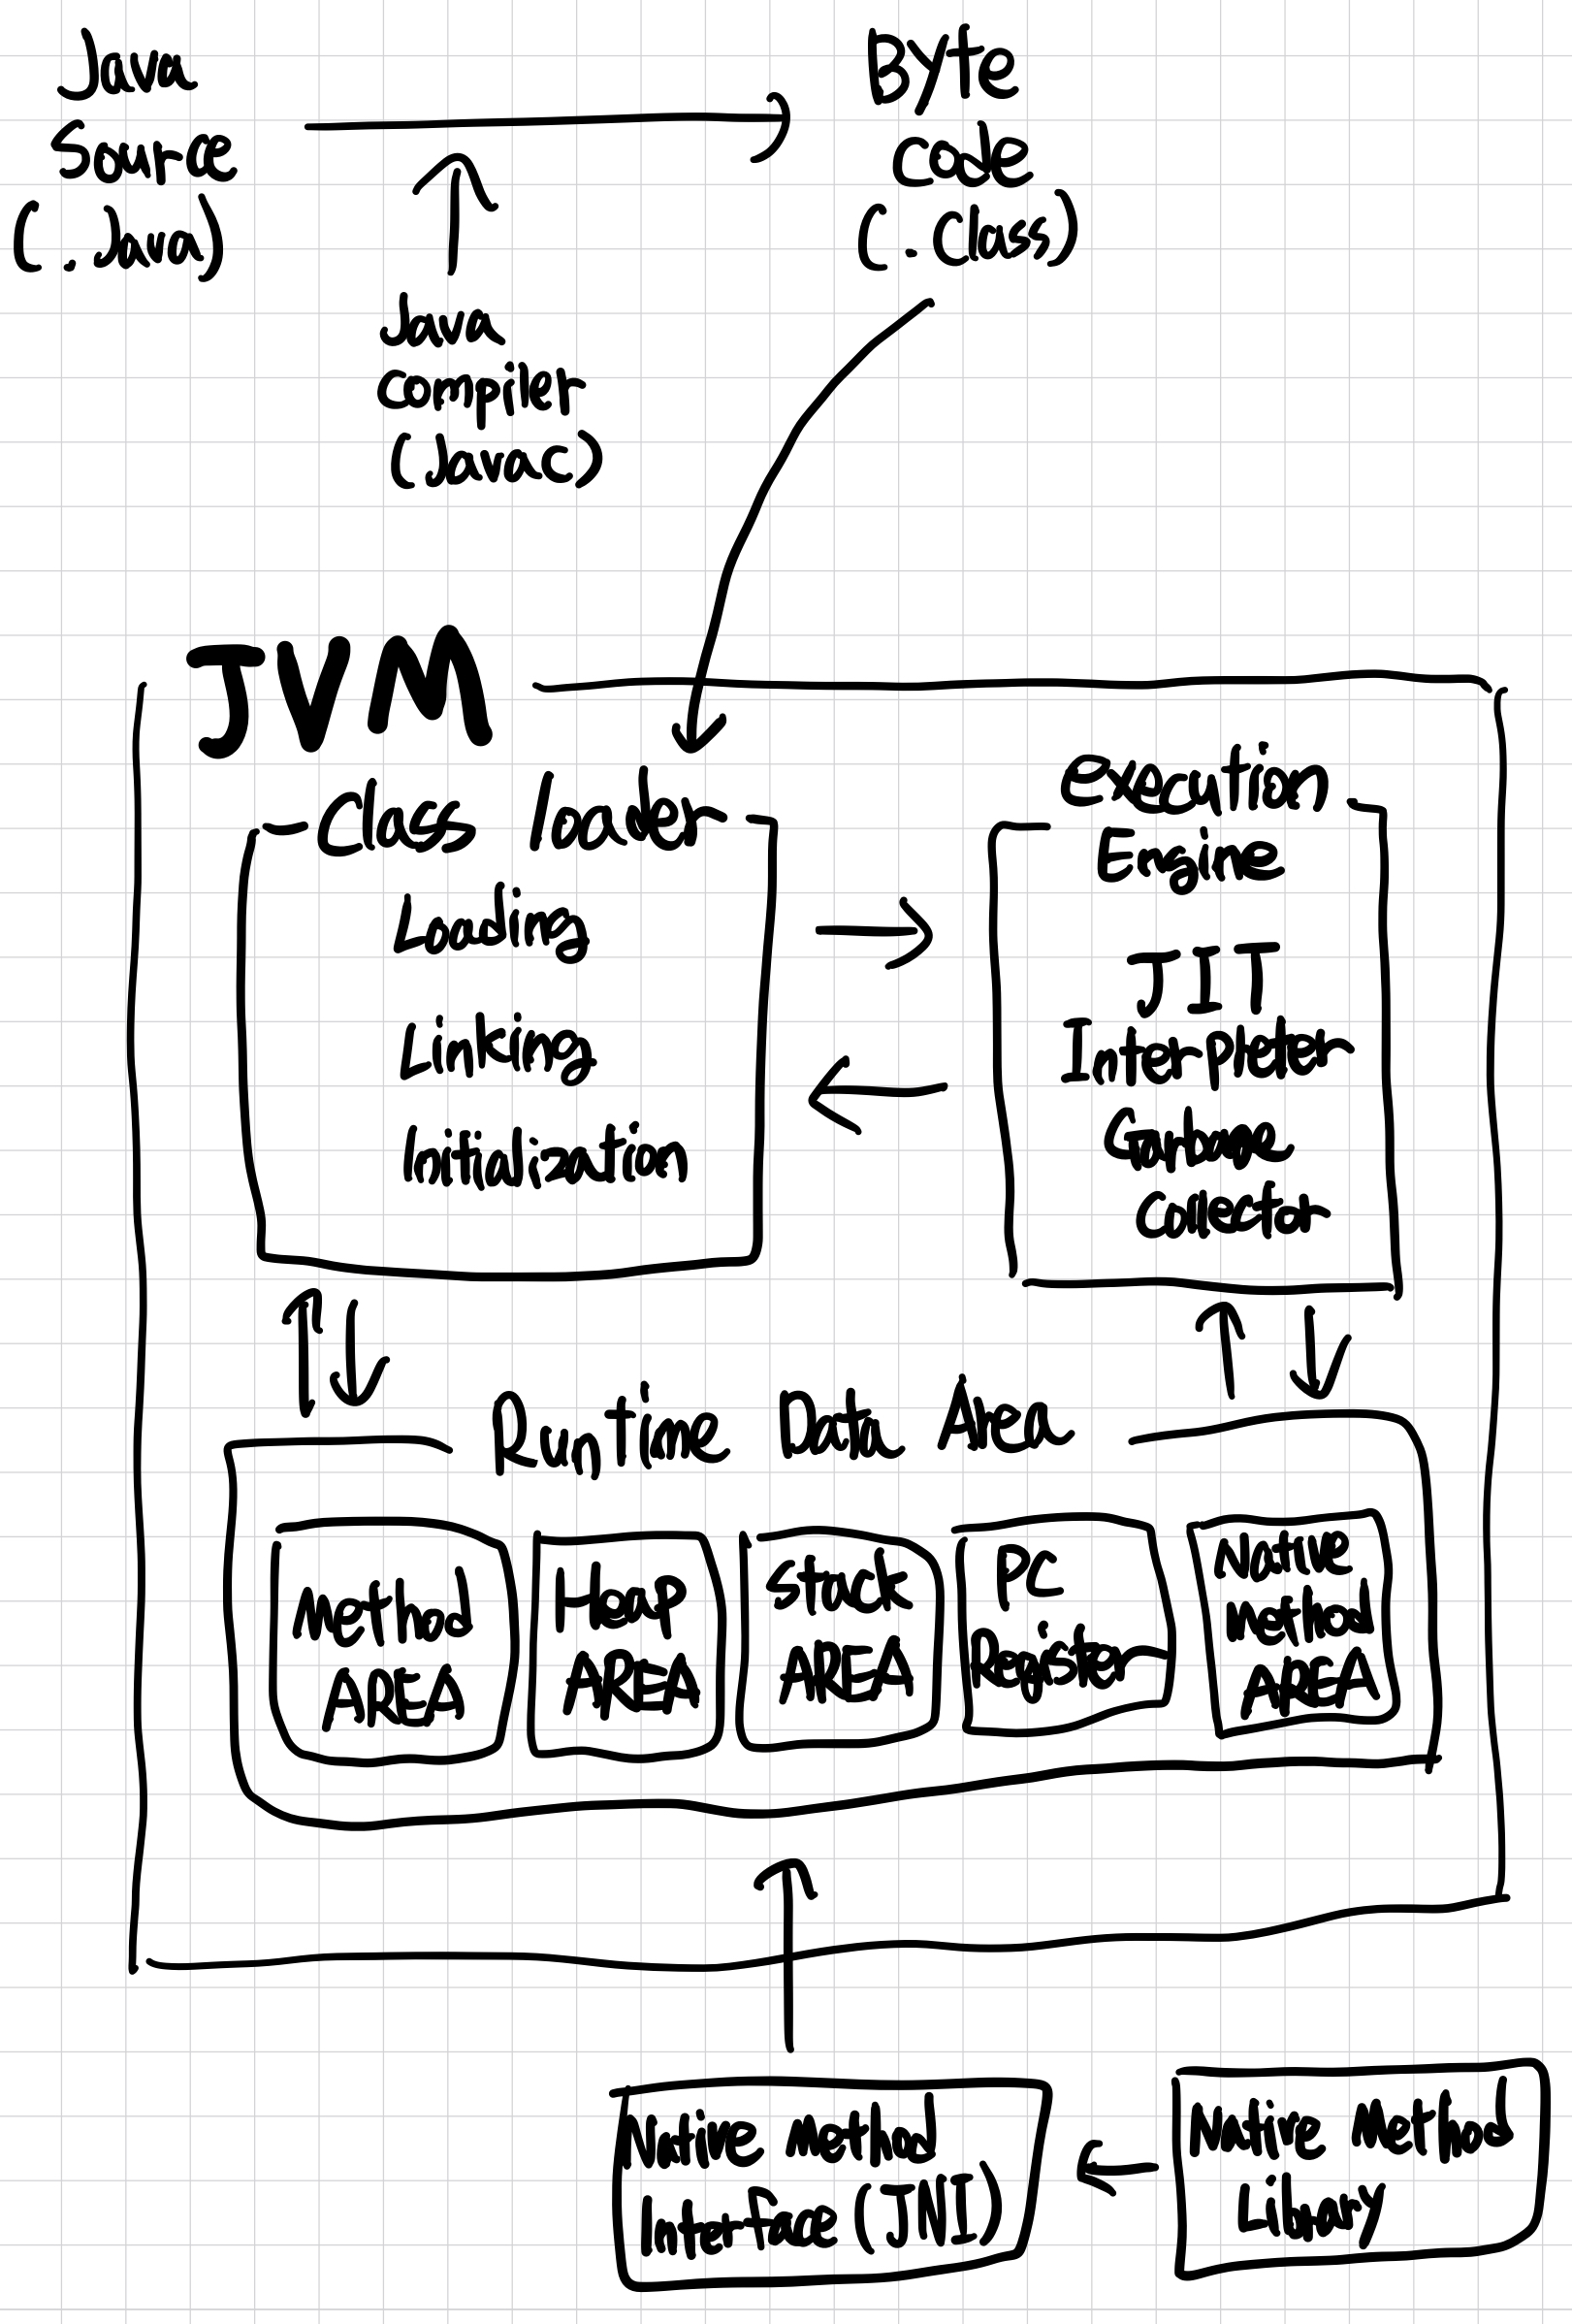 Java
Source
(.Java)
Byte
Code
(.Class)
Java
Compiler
(Javac)
JVM
Class loader
Loading
Linking
Initialization
execution
Engine
JIT
Interpleter
Garbage
Collector
Runtime Data Area
Method
AREA
Heap
AREA
Stack
AREA
PC
Register
Native
Method
AREA
Native Method
Interface (JNI)
Native Method
Library